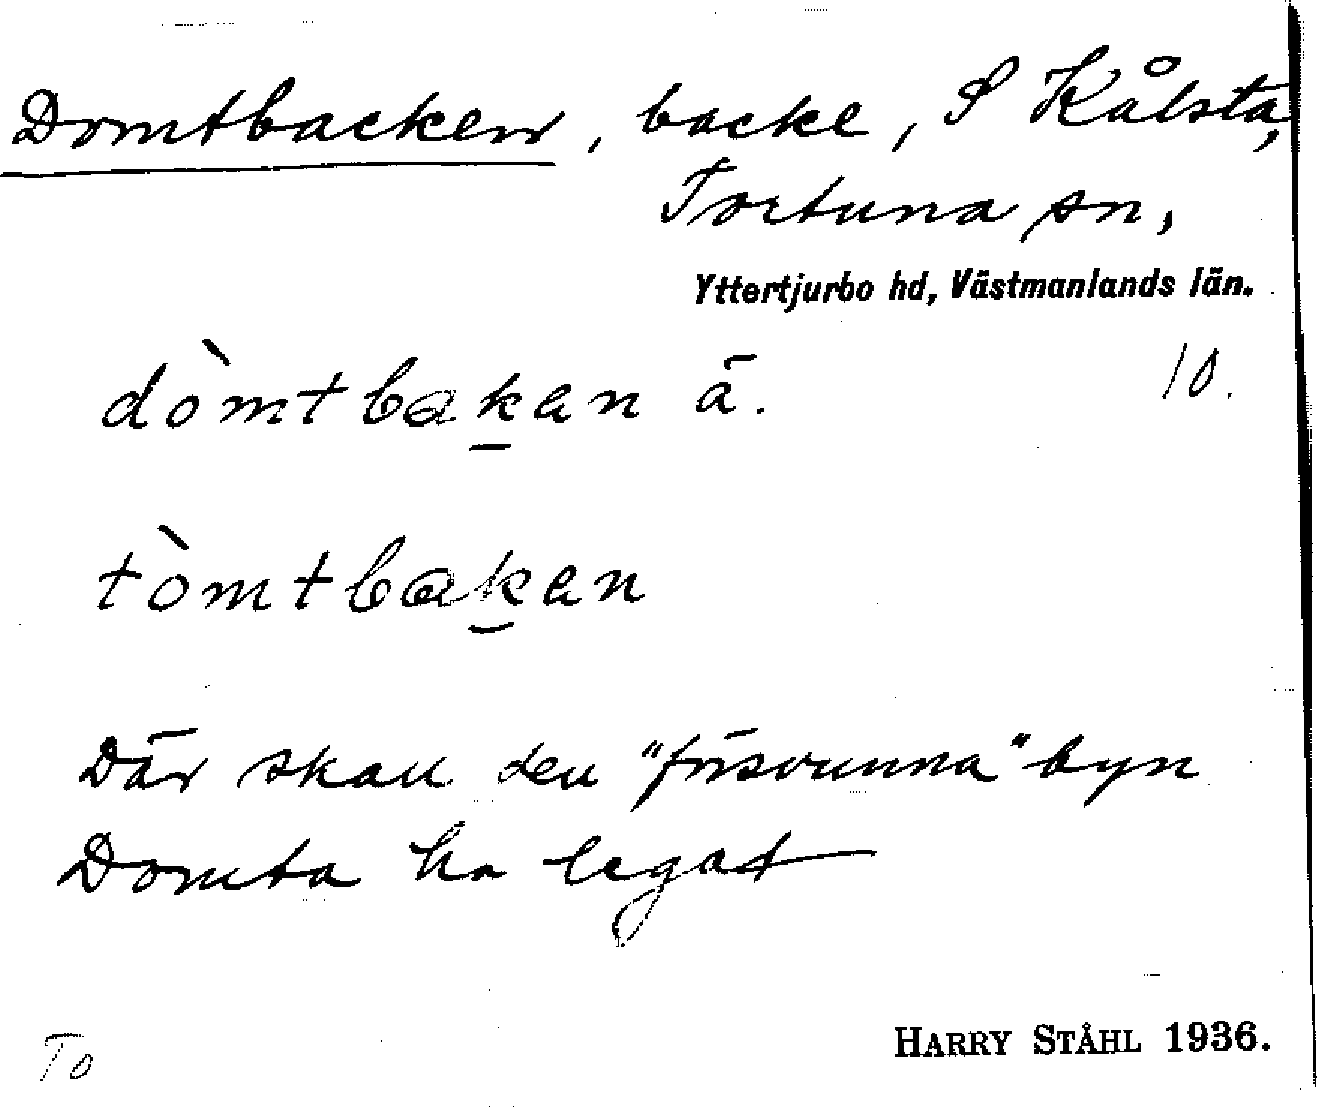 Domtbacken, backe, S Kålsta,
Tortuna sn,
Yttertjurbo hd, Västmanlands län.
dòmtbak̲an ä.
10.
tòmtbak̲an
Där skall den "försvunna" byn
Domta ha legat
To
HARRY STÅHL 1936.